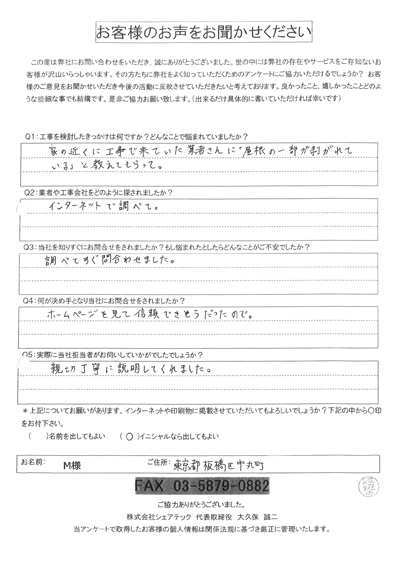 お客様のお声をお聞かせください
この度は弊社にお問い合わせをいただき、誠にありがとうございました。世の中には弊社の存在やサービスをご存知ないお
客様が沢山いらっしゃいます。その方たちに弊社をよく知っていただくためのアンケートにご協力いただけるでしょうか？ お客
様のご意見をお聞かせいただき今後の活動に反映させていただきたいと考えております。良かったこと、嬉しかったことどのよ
うな些細な事でも結構です。是非ご協力お願い致します。(出来るだけ具体的に書いていただければ幸いです)
Q1:工事を検討したきっかけは何ですか？どんなことで悩まれていましたか？
家の近くに工事で来ていた業者さんに「屋根の一部が剥がれて
いる」と教えてもらって。
Q2:業者や工事会社をどのように探されましたか？
インターネットで調べて。
Q3:当社を知りすぐにお問合せをされましたか？もし悩まれたとしたらどんなことがご不安でしたか？
調べてすぐ問合わせました。
Q4:何が決め手となり当社にお問合せをされましたか？
ホームページを見て信頼できそうだったので。
Q5:実際に当社担当者がお伺いしていかがでしたでしょうか？
親切丁寧に説明してくれました。
＊上記についてお願いがあります。インターネットや印刷物に掲載させていただいてもよろしいでしょうか？下記の中から〇印
をお付下さい。
(　　)名前を出してもよい　　(〇)イニシャルなら出してもよい
お名前: M様 ご住所: 東京都板橋区中丸町
FAX 03-5879-0882
ご協力ありがとうございました。
株式会社シェアテック 代表取締役 大久保 誠二
当アンケートで取得したお客様の個人情報は関係法規に基づき厳正に管理いたします。